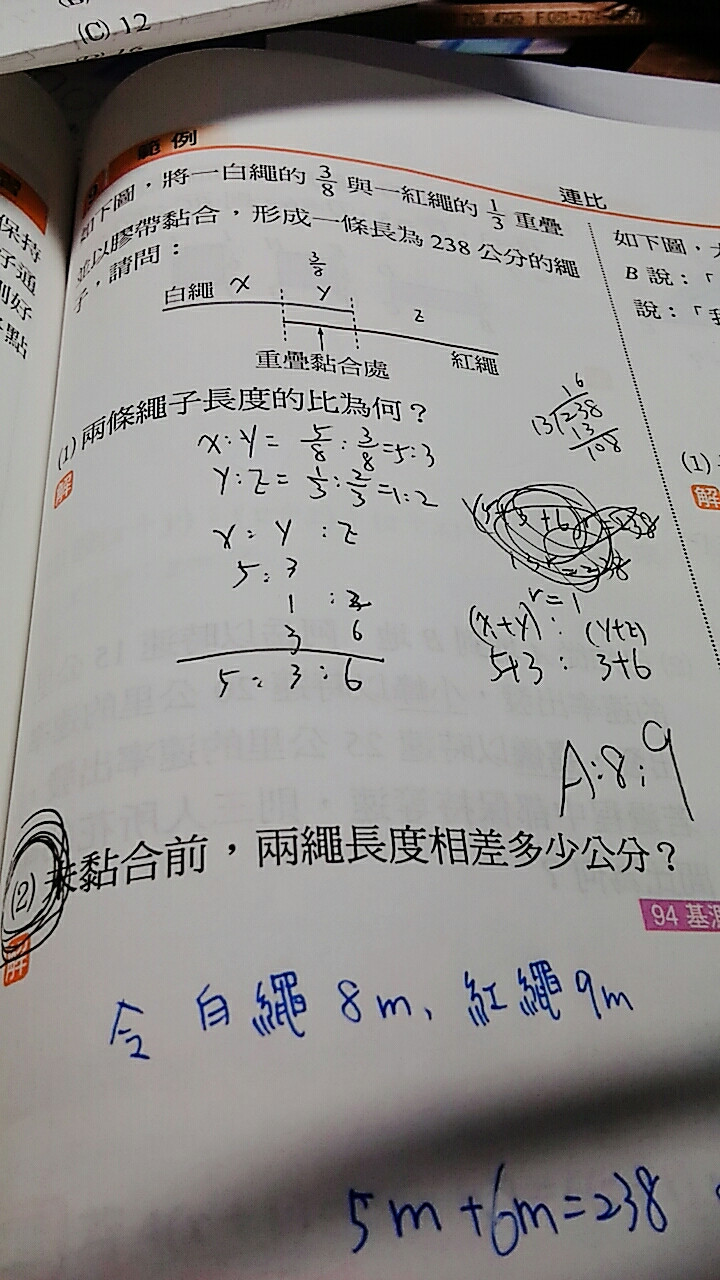 (C) 12
範例
連比
如下圖，將一白繩的 3/8 與一紅繩的 1/3 重疊
並以膠帶黏合，形成一條長為 238 公分的繩
子，請問：
3/8
白繩 X Y Z
重疊黏合處 紅繩
(1) 兩條繩子長度的比為何？
解
X:Y= 5/8 : 3/8 =5:3
Y:Z= 1/3 : 2/3 =1:2
X : Y : Z
5 : 3
1 : 2
3 6
5 : 3 : 6
16
13 238
13
108
r=1
(X+Y) : (Y+Z)
5+3 : 3+6
A:8:9
(2) 未黏合前，兩繩長度相差多少公分？
解
94 基測
令 白繩 8m、紅繩 9m
5m+6m=238
如下圖，
B 說：「
說：「我
(1)
解
保持